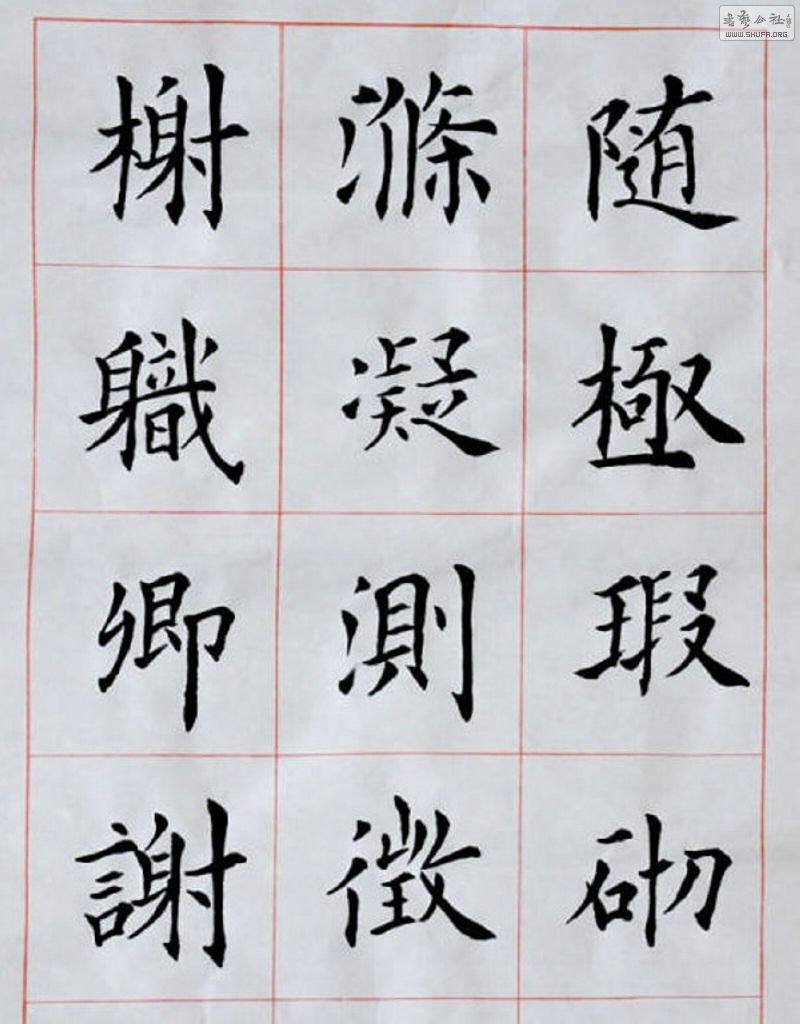 随極瑕砌
滌凝測徵
榭軄卿謝
書藝公社
WWW.SHUFA.ORG